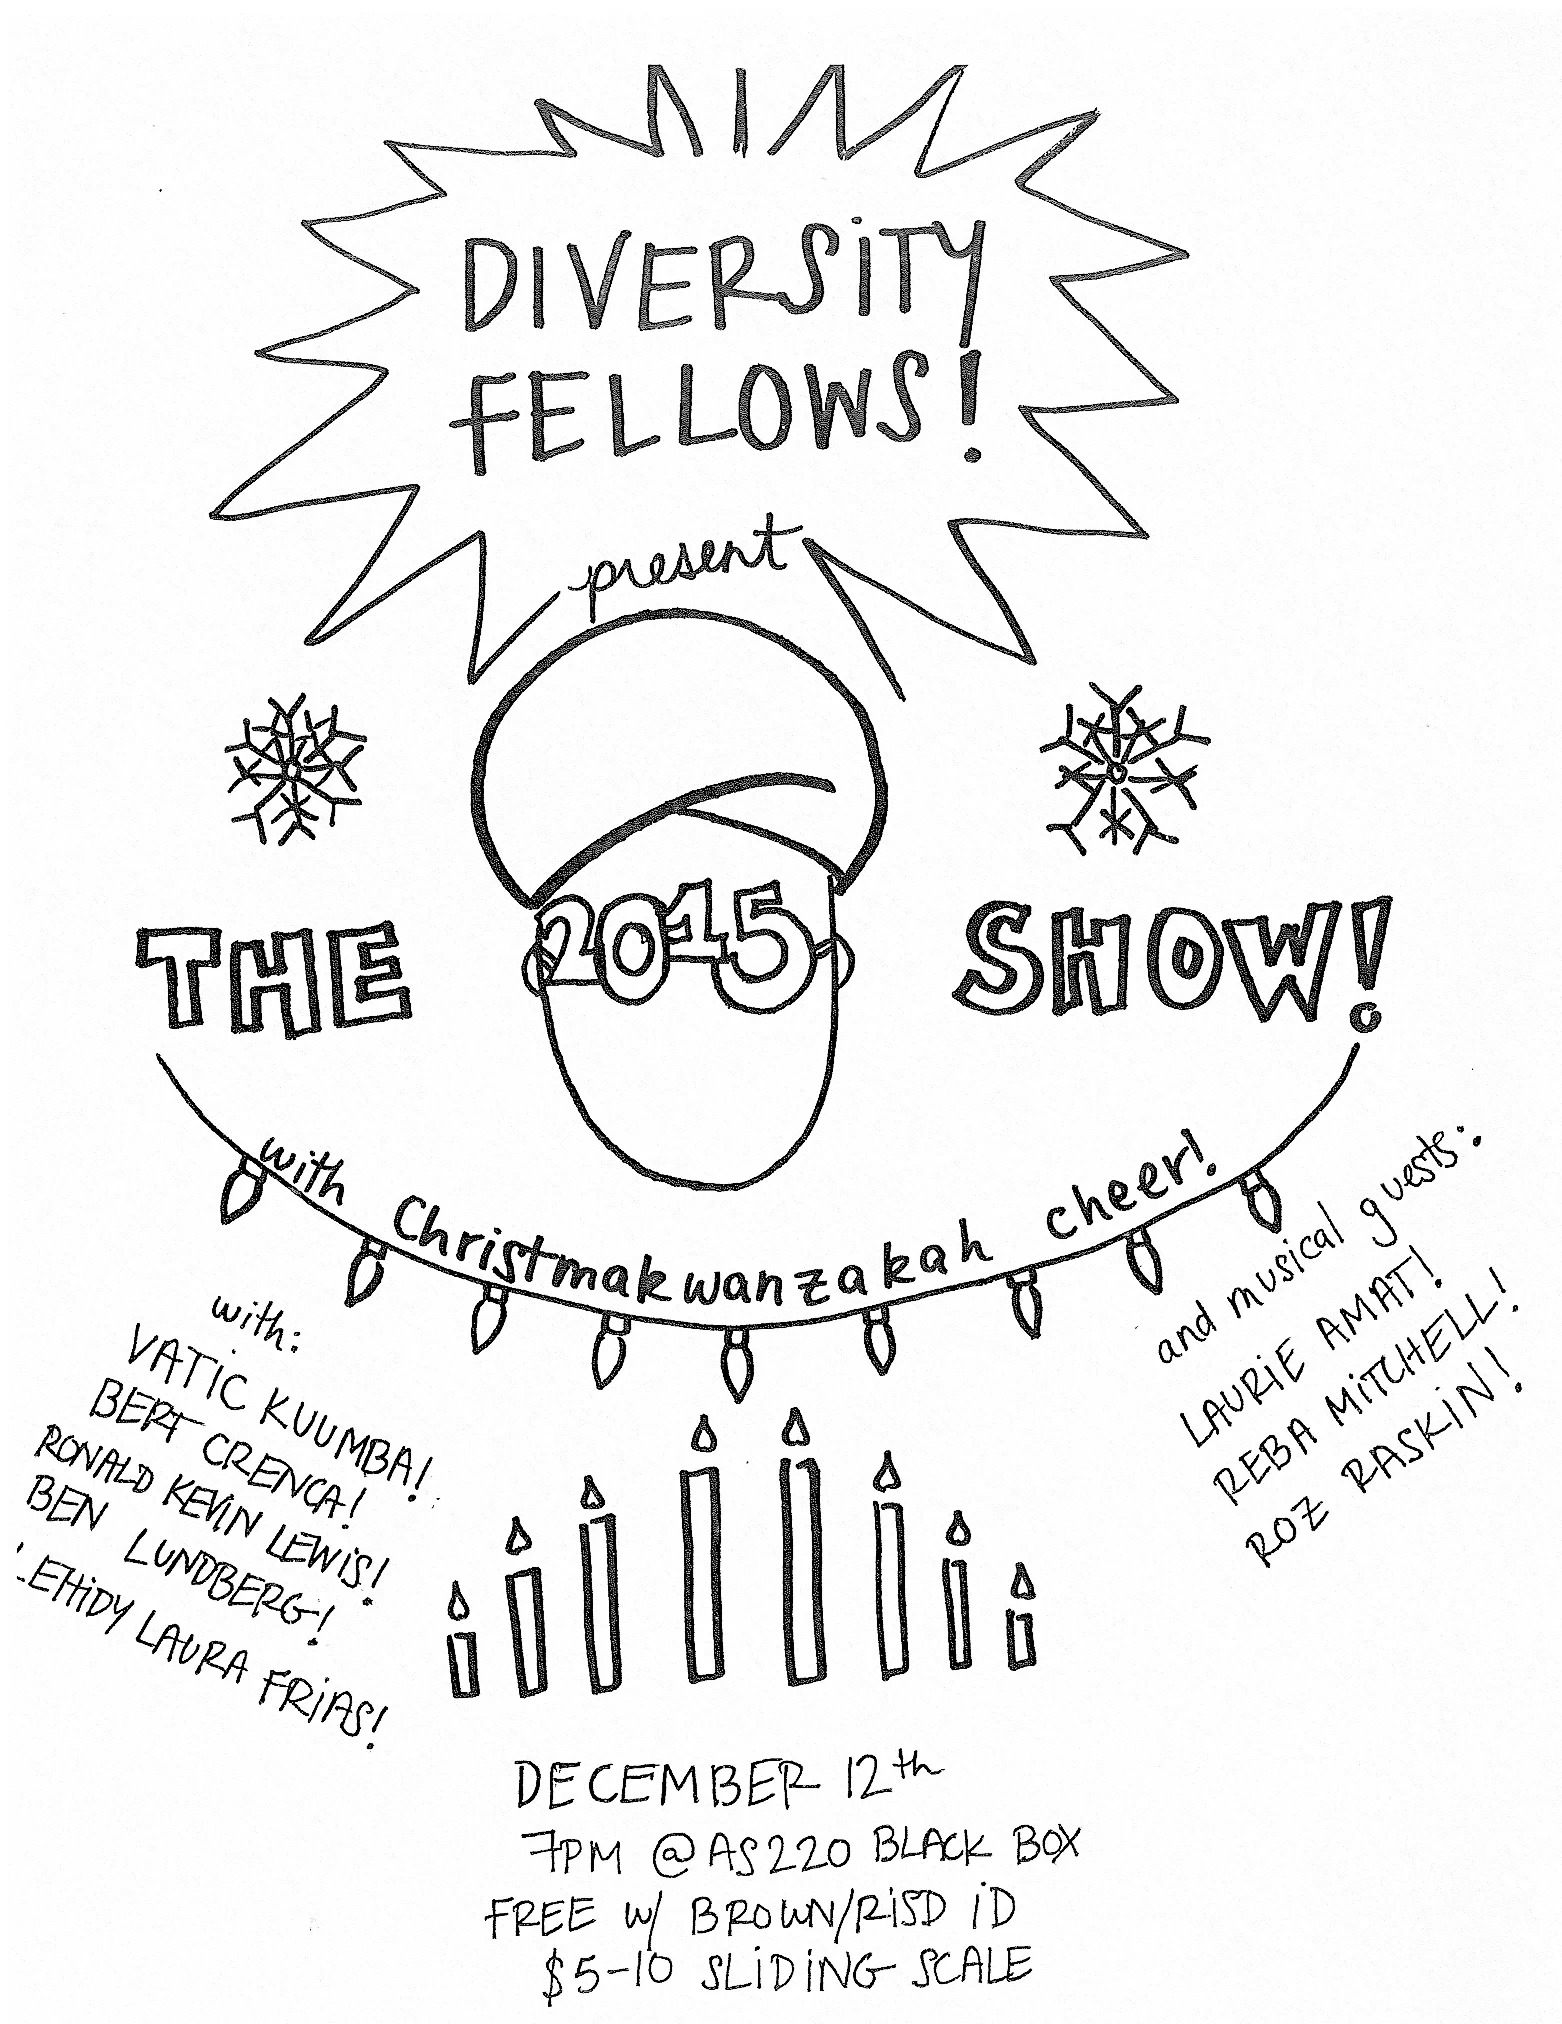 DIVERSITY
FELLOWS!
present
THE 2015 SHOW!
with Christmakwanzakah cheer!
with:
VATIC KUUMBA!
BERT CRENCA!
RONALD KEVIN LEWIS!
BEN LUNDBERG!
LAURA FRIAS!
and musical guests:
LAURIE AMAT!
REBA MITCHELL!
ROZ RASKIN!
DECEMBER 12th
7PM @ AS220 BLACK BOX
FREE W/ BROWN/RISD ID
$5-10 SLIDING SCALE